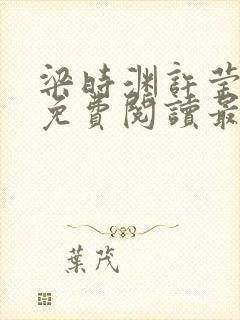 梁時渊許莹
免費閱讀最
葉茂